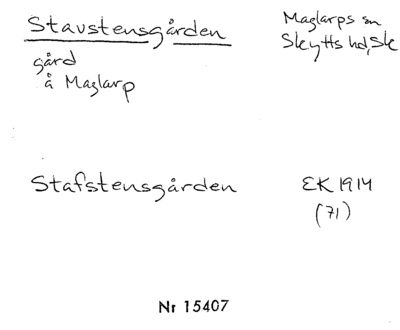 Stavstensgården
Maglarps sn
Skytts hd, Sk
gård
å Maglarp
Stafstensgården
EK 1914
(71)
Nr 15407